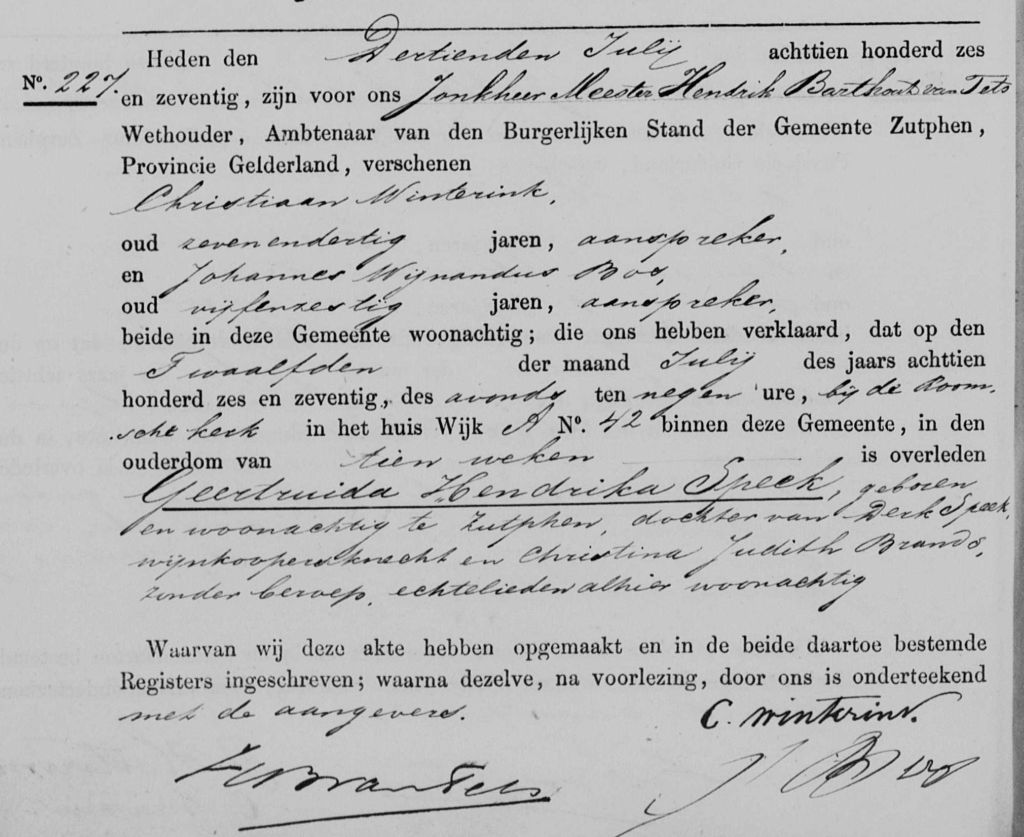 Heden den Dertienden Julij achttien honderd zes
No. 227. en zeventig, zijn voor ons Jonkheer Meester Hendrik Barthout van Tets
Wethouder, Ambtenaar van den Burgerlijken Stand der Gemeente Zutphen,
Provincie Gelderland, verschenen
Christiaan Winterink,
oud zevenendertig jaren, aanspreker,
en Johannes Wijnandus Bos,
oud vijfenzestig jaren, aanspreker,
beide in deze Gemeente woonachtig; die ons hebben verklaard, dat op den
Twaalfden der maand Julij des jaars achttien
honderd zes en zeventig, des avonds ten negen ure, bij de Room-
sche kerk in het huis Wijk A No. 42 binnen deze Gemeente, in den
ouderdom van tien weken is overleden
Geertruida Hendrika Speek, geboren
en woonachtig te Zutphen, dochter van Derk Speek,
wijnkoopersknecht en Christina Judith Brands,
zonder beroep, echtelieden alhier woonachtig
Waarvan wij deze akte hebben opgemaakt en in de beide daartoe bestemde
Registers ingeschreven; waarna dezelve, na voorlezing, door ons is onderteekend
met de aangevers.
C. Winterink.
HBvanTets